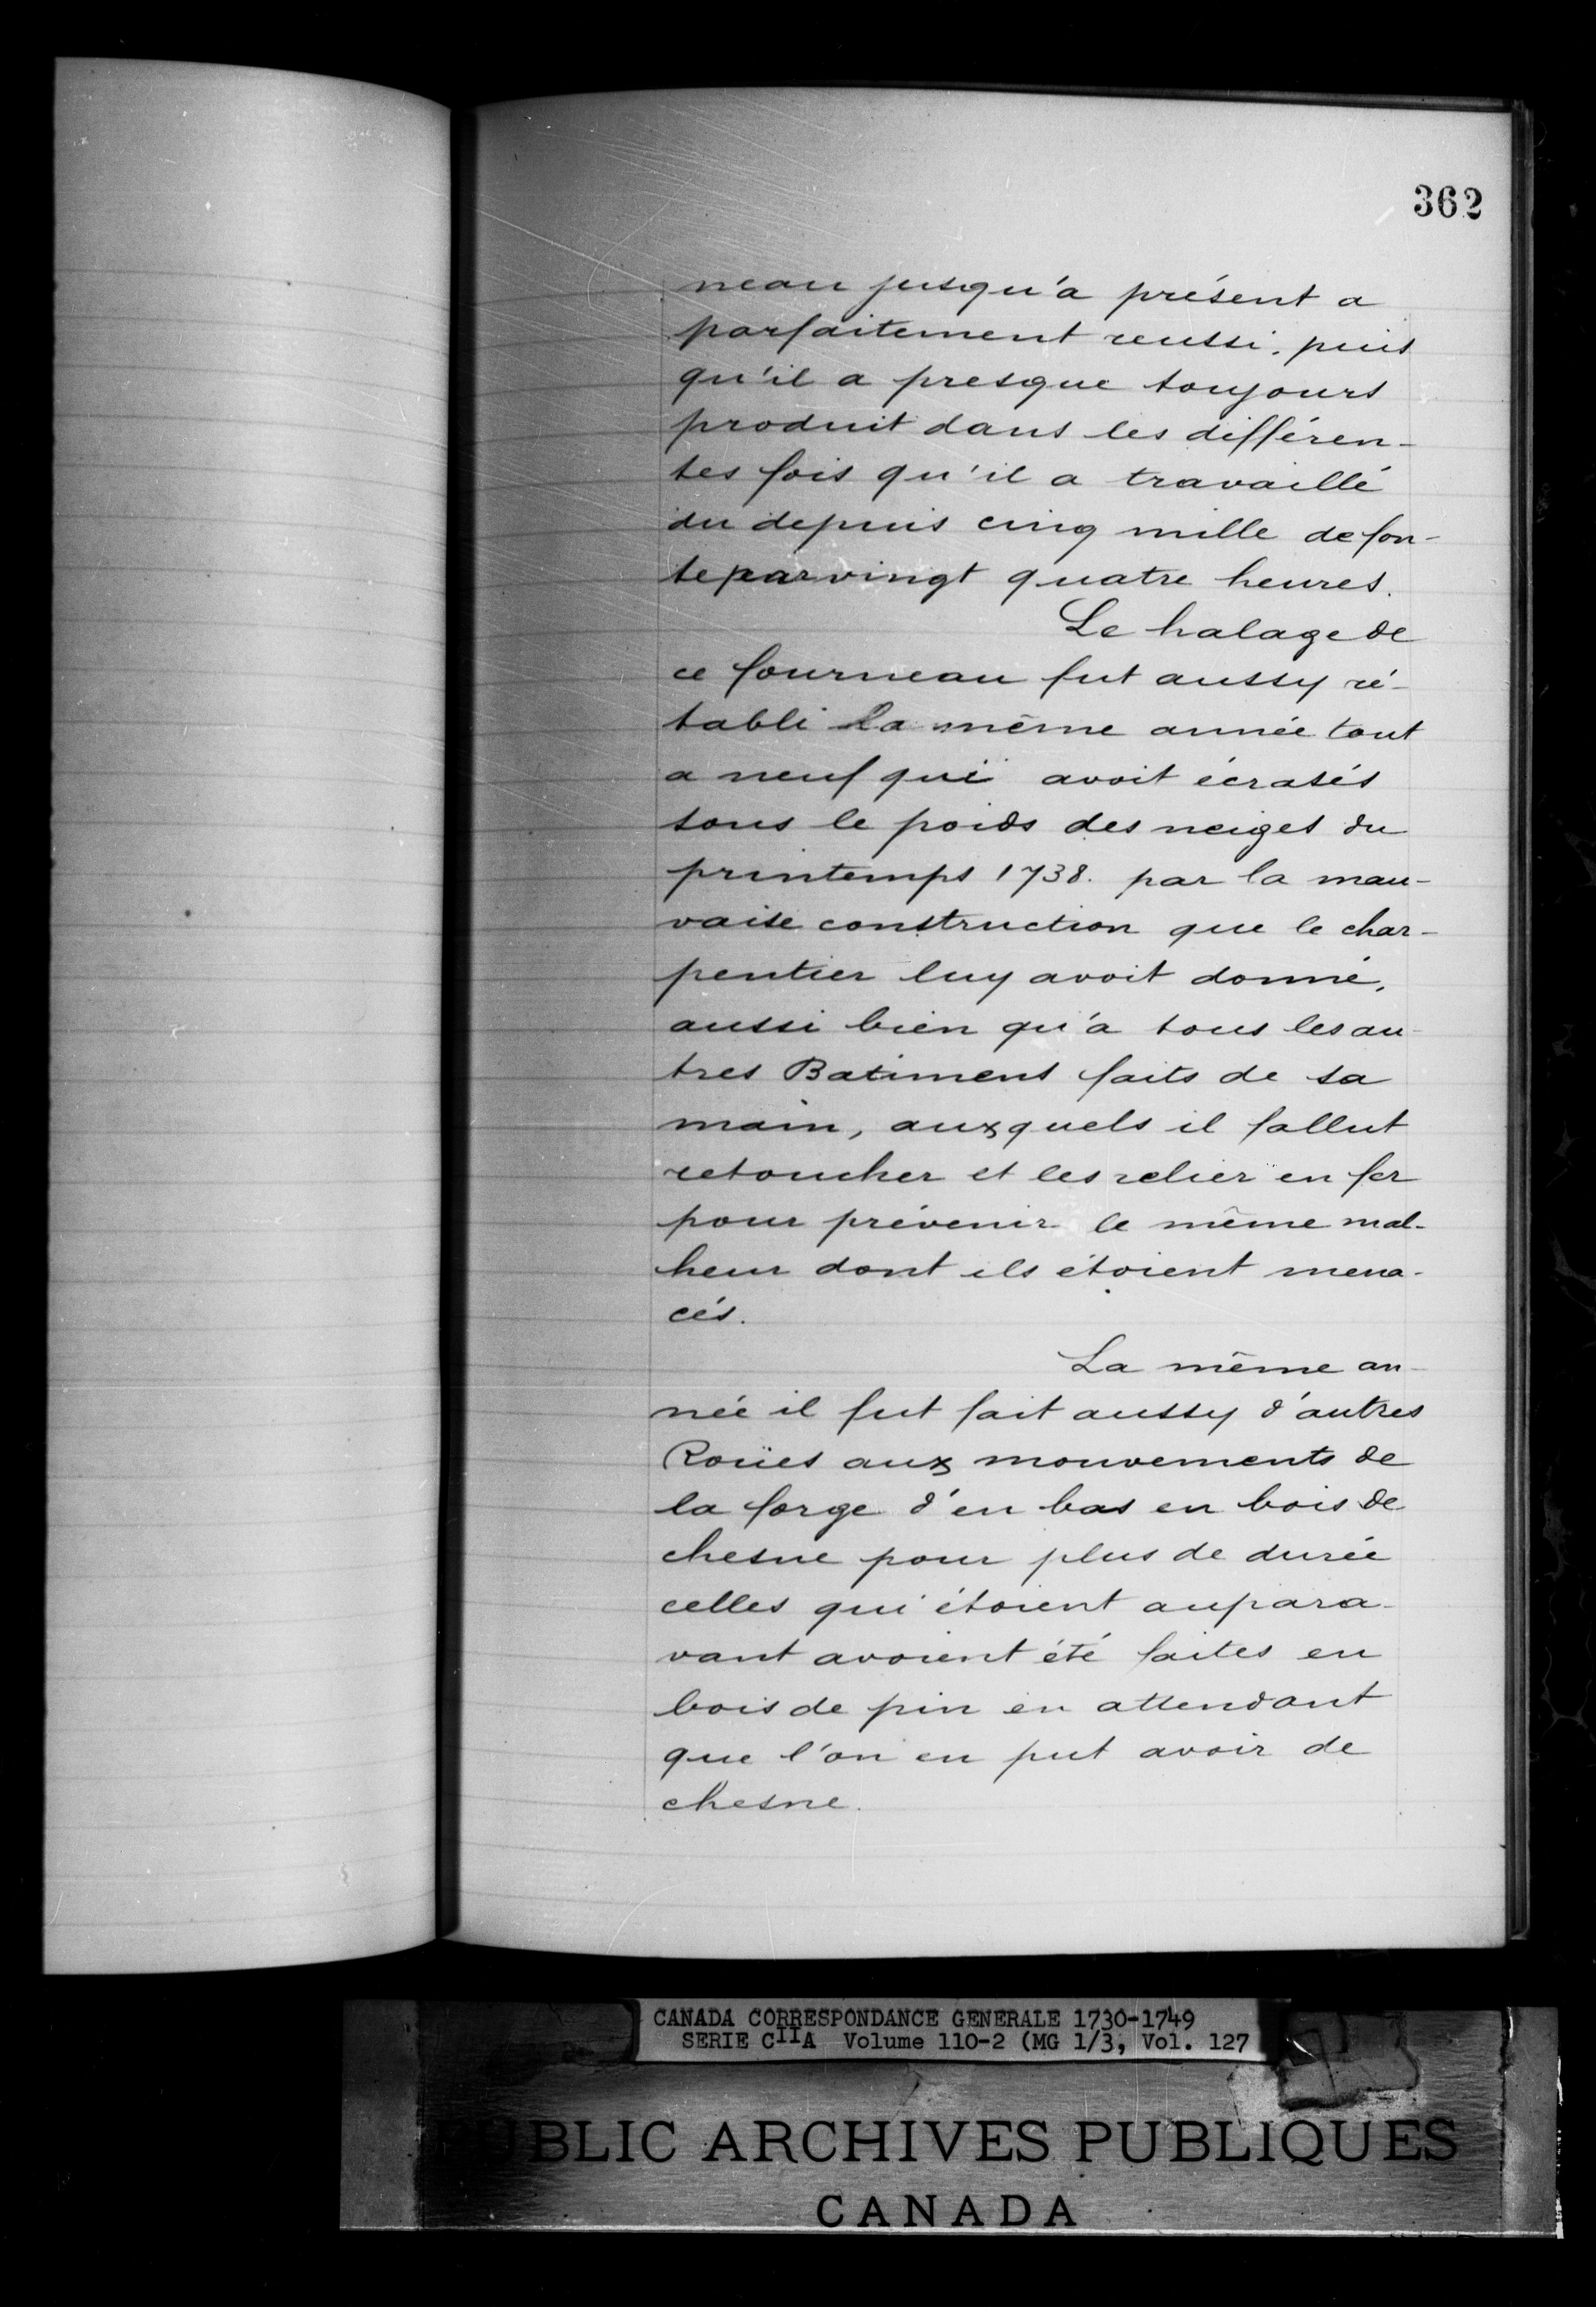 362
neau jusqu'a présent a
parfaitement reussi, puis
qu'il a presque toujours
produit dans les différen-
tes fois qu'il a travaillé
du depuis cinq mille de fon-
te par vingt quatre heures.
Le halage de
ce fourneau fut aussy ré-
tabli la même année tout
a neuf qui avoit écrasés
sous le poids des neiges du
printemps 1738. par la mau-
vaise construction que le char-
pentier luy avoit donné,
aussi bien qu'a tous les au-
tres Batiments faits de sa
main, auxquels il fallut
retoucher et les relier en fer
pour prévenir le même mal-
heur dont ils étoient mena-
cés.
La même an-
née il fut fait aussy d'autres
Roües aux mouvements de
la forge d'en bas en bois de
chesne pour plus de durée
celles qui étoient aupara-
vant avoient été faites en
bois de pin en attendant
que l'on en put avoir de
chesne.
CANADA CORRESPONDANCE GENERALE 1730-1749
SERIE CIIA Volume 110-2 (MG 1/3, Vol. 127
PUBLIC ARCHIVES PUBLIQUES
CANADA